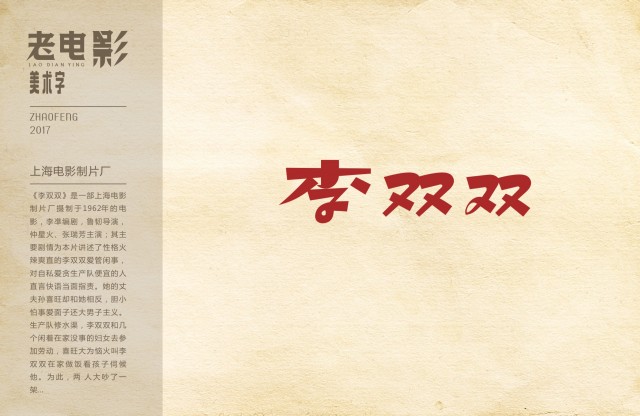 老电影
LAO DIAN YING
美术字
ZHAOFENG
2017
上海电影制片厂
《李双双》是一部上海电影
制片厂摄制于1962年的电
影，李準编剧，鲁韧导演，
仲星火、张瑞芳主演；其主
要剧情为本片讲述了性格火
辣爽直的李双双爱管闲事，
对自私爱贪生产队便宜的人
直言快语当面指责。她的丈
夫孙喜旺却和她相反，胆小
怕事爱面子还大男子主义。
生产队修水渠，李双双和几
个闲着在家没事的妇女去参
加劳动，喜旺大为恼火叫李
双双在家做饭看孩子伺候
他。为此，两 人大吵了一
架...
李双双